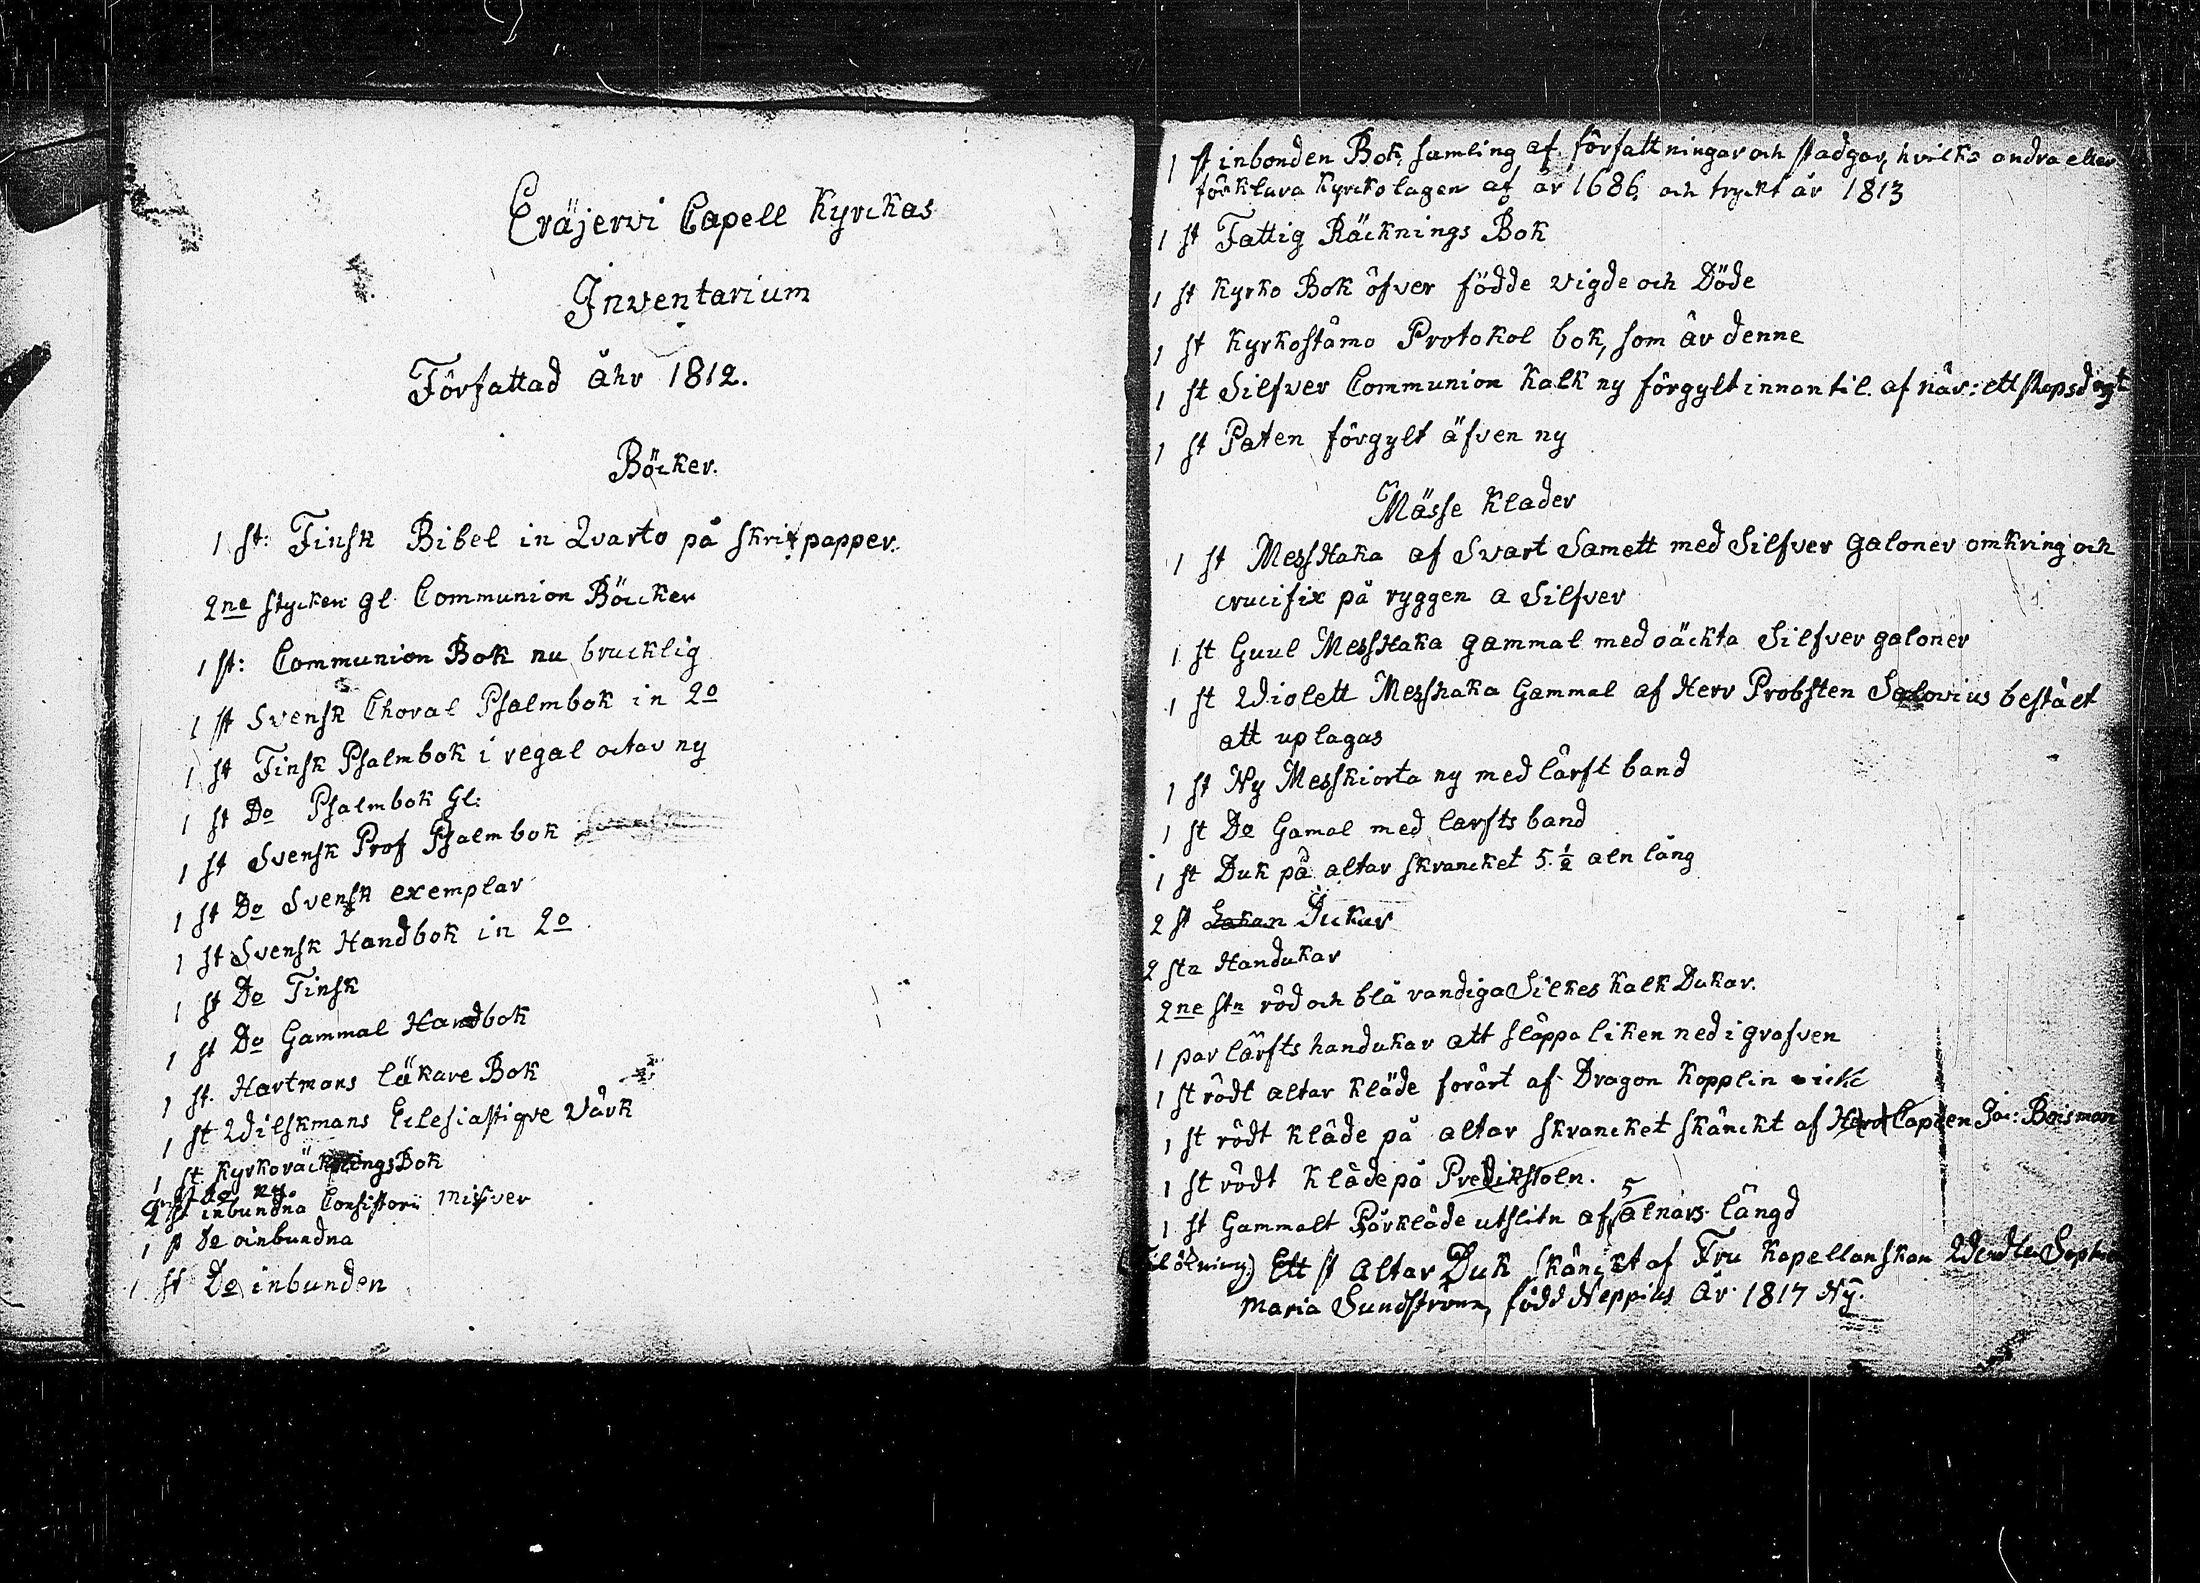 Eräjerwi Capell Kyrckas
Inventarium
Författad åhr 1812.
Böcker.
1 st: Finsk Bibel in Qvarto på skrifpapper.
2ne stycken gl Communion Böcker
1 st: Communion Bok nu brucklig
1 st Svensk Choral Psalmbok in 2o
1 st Finsk Psalmbok i regal octav ny
1 st Do Psalmbok Gl:
1 st Svensk Prof Psalmbok
1 st Do Svensk exemplar
1 st Svensk Handbok in 2o
1 st Do Finsk
1 st Do Gammal Handbok
1 st. Hartmans läkare Bok
1 st Wilskmans Eclesiastiqve värk
1 st Kyrkoräcknings Bok
2 st inbundna Consistorii Misiver
1 st Do oinbundna
1 st Do inbunden
1 st inbonden Bok, samling af författningar och stadgar, hvilka ändra eller
förklara Kyrckolagen af år 1686, och tryckt år 1813
1 st Fattig Räcknings Bok
1 st Kyrko Bok öfver födde vigde och Döde
1 st Kyrkoståmo Protokol bok, som är denne
1 st Silfver Communion Kalk ny förgylt innantil. af när: ett stops drygt
1 st Paten förgylt äfven ny
Mässe Klader
1 st MessHaka af Svart Samett med Silfver galoner omkring och
crucifix på ryggen a Silfver
1 st Guul MessHaka gammal med oäckta Silfver galoner
1 st Violett Messhaka Gammal af Herr Probsten Salovius bestået
att uplagas
1 st Ny Messkiorta ny med lärft band
1 st Do Gamal med larfts band
1 st Duk på altar skrancket 5 1/2 aln lång
2 st Lakan Dukar
2 stn Handukar
2ne stn röd och blå randiga Silkes Kalk Dukar.
1 par lärfts handukar att släppa liken ned i grafven
1 st rödt altar kläde forärt af Dragon Kopplin
1 st rödt kläde på altar skrancket skänckt af Capten Boisman
1 st rödt kläde på Predikstoln.
1 st Gammalt Pärkläde utslitn af 5 alnars längd
(Tilökning) Ett st Altar Duk skänckt af Fru Kapellanskan
Maria Sundström, född Heppius År 1817 Ny.